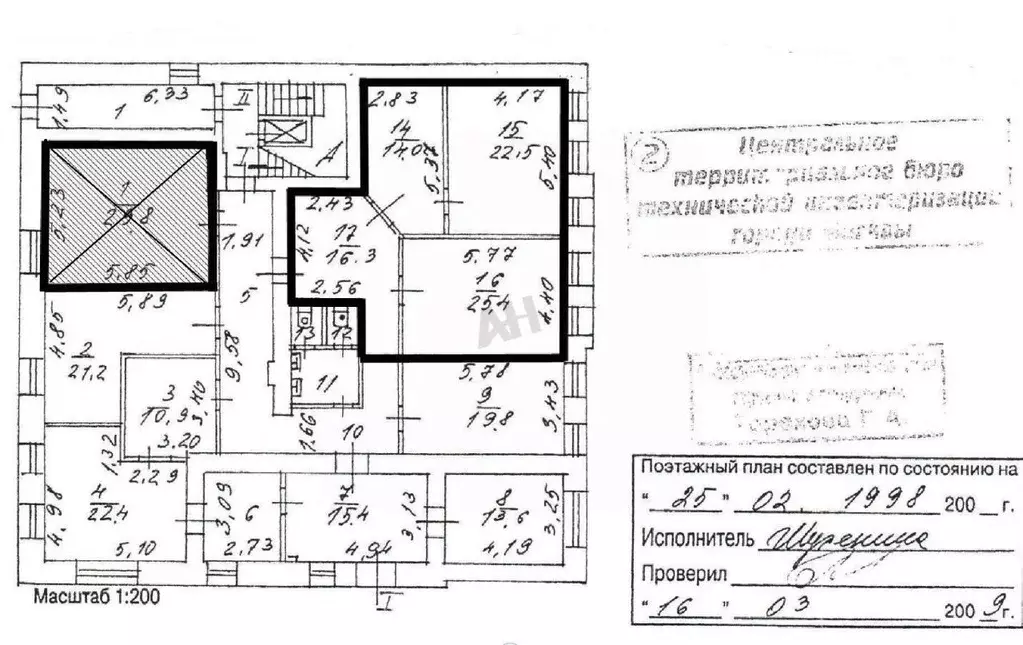 6,33
1,49
1
II
I
А
2,83
14
14.0
5,37
4,17
15
22.5
5,40
5,23
1
5.85
1,91
5
2.43
17
16.3
4,12
2.56
5.77
16
25,4
4,40
АН
5,89
4,85
2
21.2
9,58
13
12
11
3
10,9
3,40
3.20
5.78
9
19.8
3,43
1,66
10
1,32
2,29
4
22.4
4,98
5,10
3,09
6
2.73
7
15.4
3,13
4.94
8
13,6
3,25
4,19
I
Масштаб 1:200
2
Центральное
террит риальное бюро
технической инвентаризации
города Москвы
Горохова Г. А.
Поэтажный план составлен по состоянию на
" 25 " 02. 1998 200 __ г.
Исполнитель
Проверил
" 16 " 03 200 9 г.